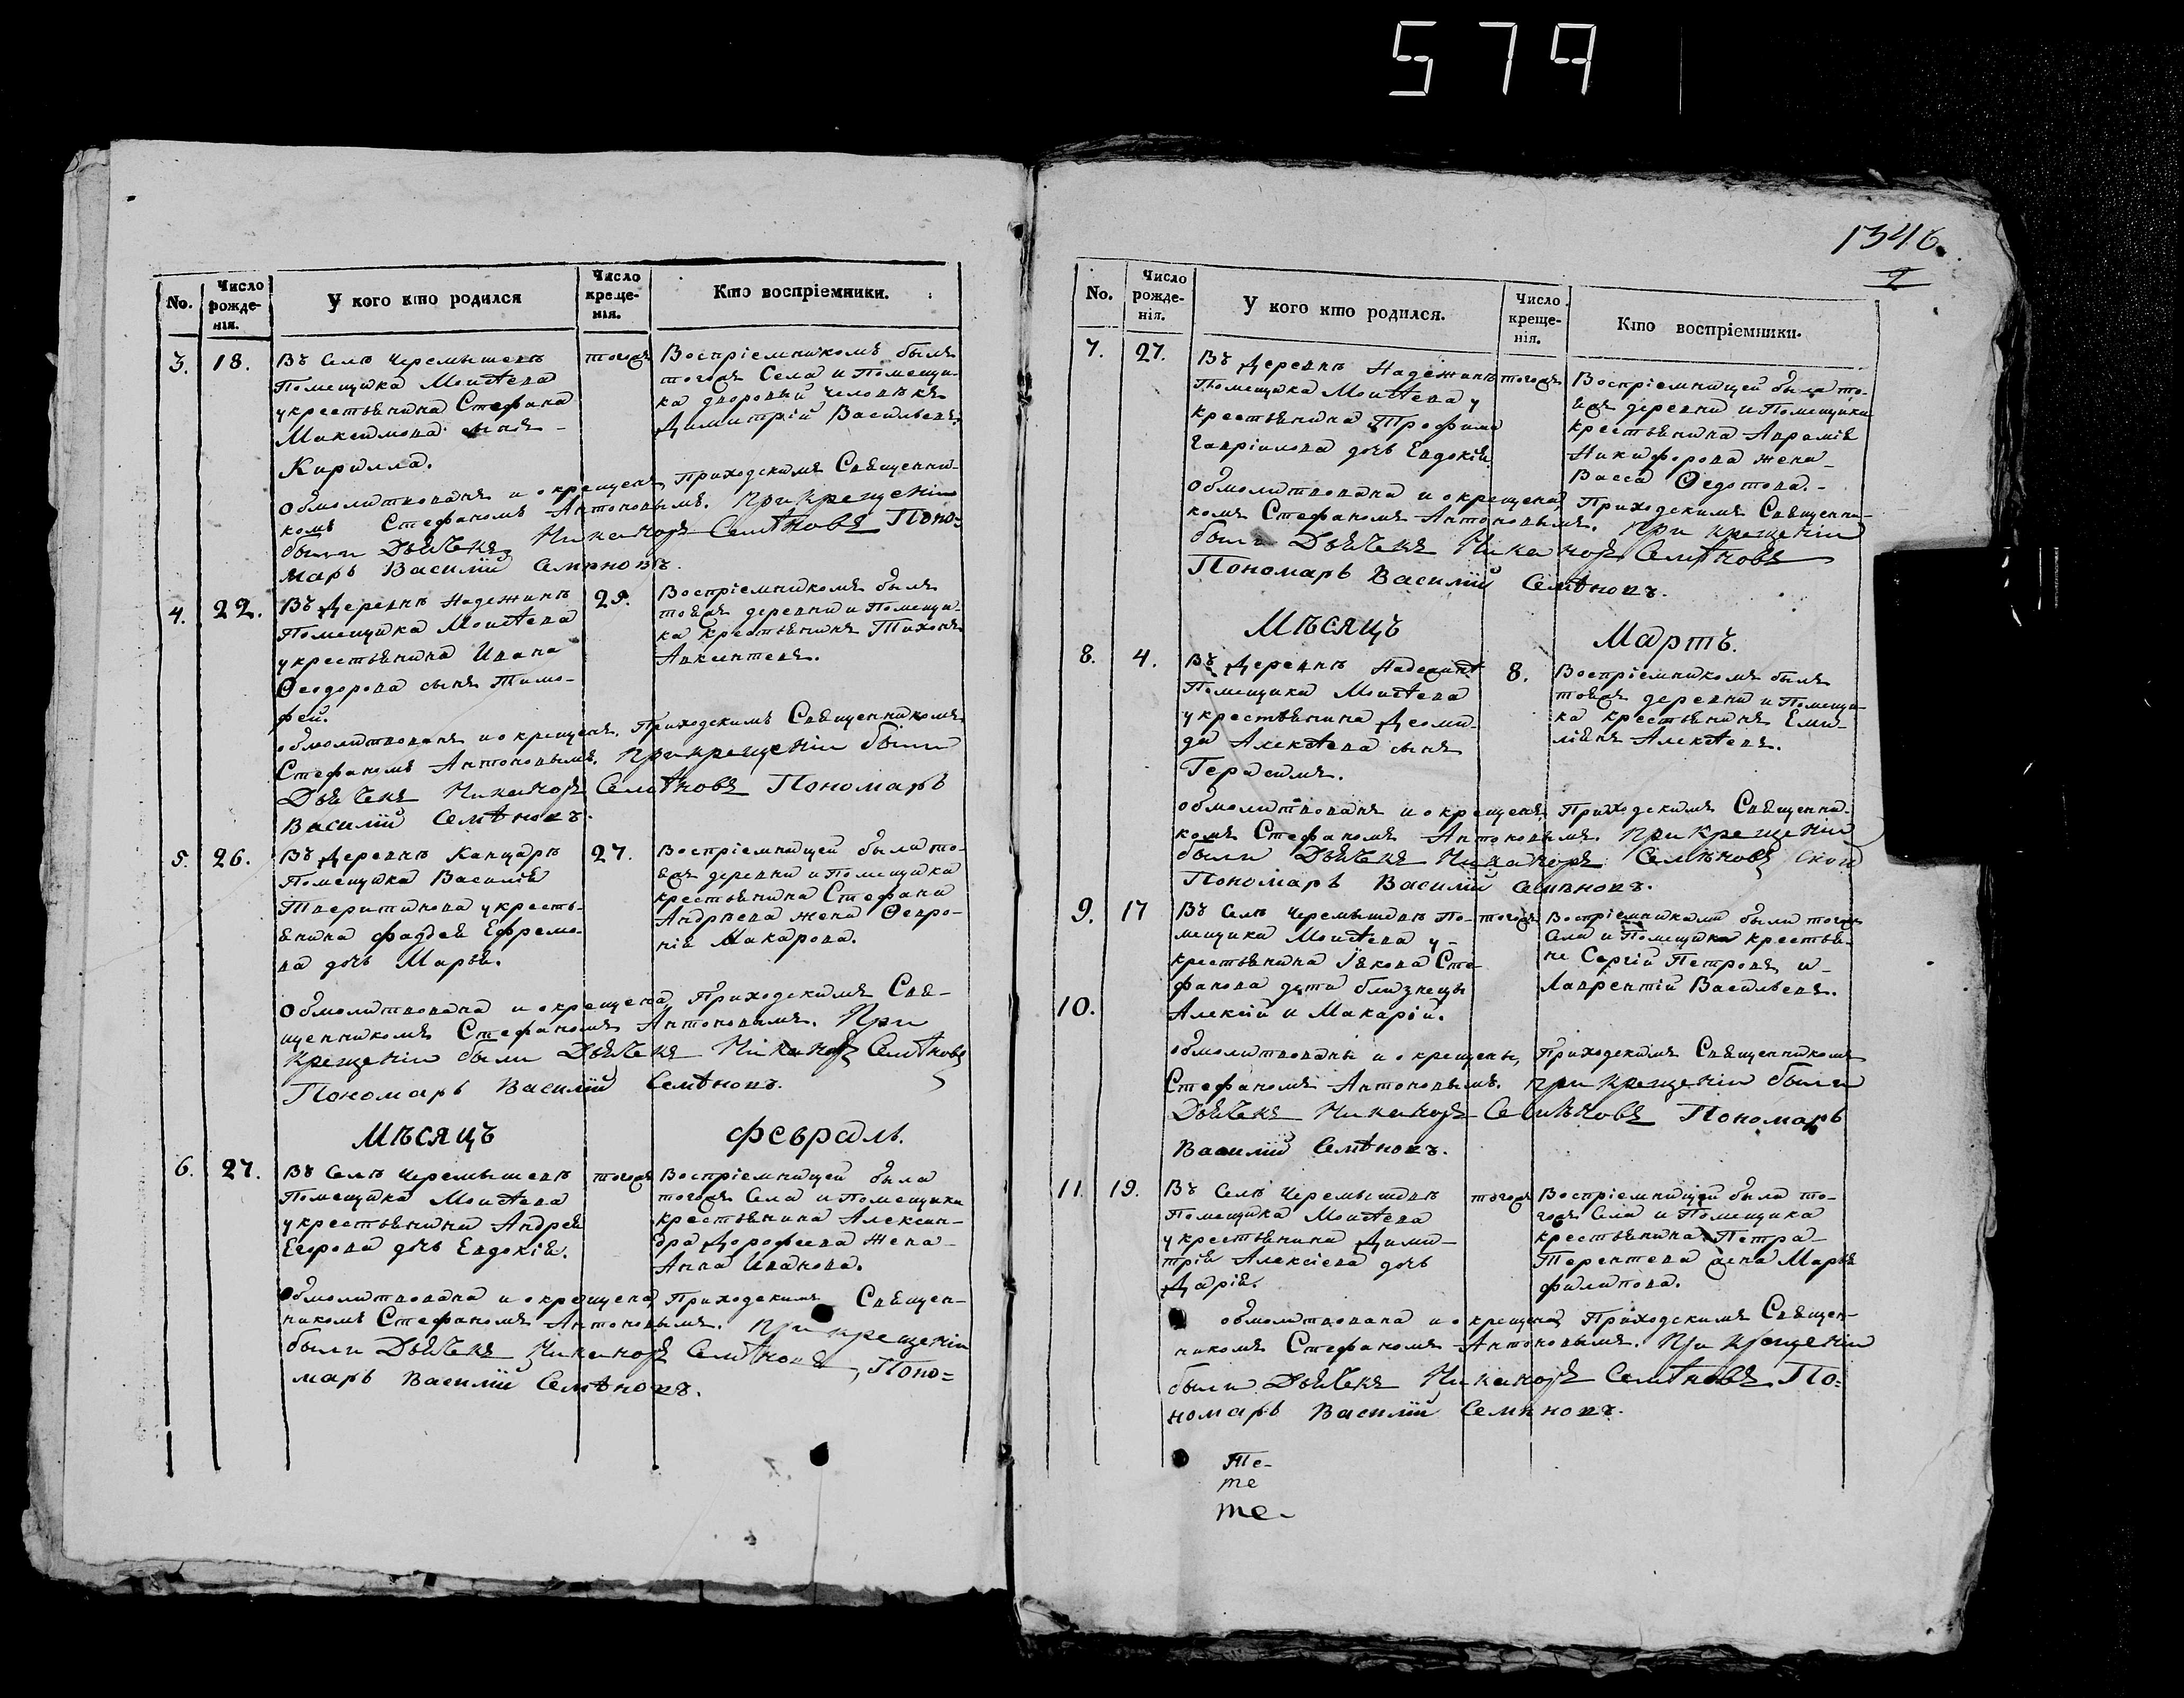 579
1346.
No.
Число рожде-нія.
У кого кто родился
Число креще-нія.
Кто воспріемники.
3.
18.
Въ Селѣ Черемышевѣ
Помещика Моисѣева
у крестьянина Стефана
Максимова сынъ
Кирилла.
тогожъ
Воспріемникомъ былъ
тогожъ Села и Помещи-
ка дворовый человѣкъ
Димитрій Васильевъ.
обмолитвованъ и окрещенъ Приходскимъ Священни-
комъ Стефаномъ Антоновымъ. При крещеніи
были Дьячекъ Никаноръ Семѣновъ Поно=
марь Василій Семѣновъ.
4.
22.
Въ Деревнѣ Надежинѣ
Помещика Моисѣева
у крестьянина Ивана
Ѳеодорова сынъ Тимо-
фей.
25.
Воспріемникомъ былъ
тояжъ деревни и Помещи-
ка крестьянинъ Тихонъ
Авксентевъ.
обмолитвованъ и окрещенъ, Приходскимъ Священникомъ
Стефаномъ Антоновымъ. При крещеніи были
Дьячекъ Никаноръ Семѣновъ Пономарь
Василій Семѣновъ.
5.
26.
Въ Деревнѣ Канцарѣ
Помещика Василія
Тверитинова у кресть-
янина Фаддея Ефремо-
ва дочь Марья.
27.
Воспріемницей была то-
яжъ деревни и Помещика
крестьянина Стефана
Андрѣева жена Ѳевро-
нія Макарова.
Обмолитвована и окрещена Приходскимъ Свя-
щенникомъ Стефаномъ Антоновымъ. При
крещеніи были Дьячекъ Никаноръ Семѣновъ
Пономарь Василій Семѣновъ.
Мѣсяцъ Февраль.
6.
27.
Въ Селѣ Черемышевѣ
Помещика Моисѣева
у крестьянина Андрея
Егорова дочь Евдокія.
тогожъ
Воспріемницей была
тогожъ Села и Помещика
крестьянина Алексан-
дра Дорофеева жена
Анна Иванова.
Обмолитвована и окрещена Приходскимъ Священ-
никомъ Стефаномъ Антоновымъ. При крещеніи
были Дьячекъ Никаноръ Семѣновъ, Поно=
марь Василій Семѣновъ.
No.
Число рожде-нія.
У кого кто родился.
Число креще-нія.
Кто воспріемники.
7.
27.
Въ Деревнѣ Надежинѣ
Помещика Моисѣева у
крестьянина Трофима
Гавріилова дочь Евдокія.
тогожъ
Воспріемницей была то-
яжъ деревни и Помещика
крестьянина Аврамія
Никифорова жена
Васса Ѳедотова.-
Обмолитвована и окрещена, Приходскимъ Священни-
комъ Стефаномъ Антоновымъ. При крещеніи
были Дьячекъ Никаноръ Семѣновъ
Пономарь Василій Семѣновъ.
Мѣсяцъ Мартъ.
8.
4.
Въ Деревнѣ Надежинѣ
Помещика Моисѣева
у крестьянина Деоми-
да Алексѣева сынъ
Герасимъ.
8.
Воспріемникомъ былъ
тояжъ деревни и Помещи-
ка крестьянинъ Еми-
ліянъ Алексѣевъ.
обмолитвованъ и окрещенъ Приходскимъ Священни-
комъ Стефаномъ Антоновымъ. При крещеніи
были Дьячекъ Никаноръ Семѣновъ
Пономарь Василій Семѣновъ.
9.
17
Въ Селѣ Черемышевѣ По-
мещика Моисѣева у-
крестьянина Іякова Сте-
фанова дѣти близнецы
10.
Алексій и Макарій.
тогожъ
Воспріемниками были тогожъ
Села и Помещика крестья-
не Сергій Петровъ и-
Лаврентій Васильевъ.
обмолитвованы и окрещены, Приходскимъ Священникомъ
Стефаномъ Антоновымъ. При крещеніи были
Дьячекъ Никаноръ Семѣновъ Пономарь
Василій Семѣновъ.
11.
19.
Въ Селѣ Черемышевѣ
Помещика Моисѣева
у крестьянина Дими-
трія Алексіева дочь
Дарія.
тогожъ
Воспріемницей была то-
гожъ Села и Помещика
крестьянина Петра-
Терентева жена Марья
Филипова.
обмолитвована и окрещена, Приходскимъ Священ-
никомъ Стефаномъ Антоновымъ. При крещеніи
были Дьячекъ Никаноръ Семѣновъ По=
номарь Василій Семѣновъ.
Те-
те
те-